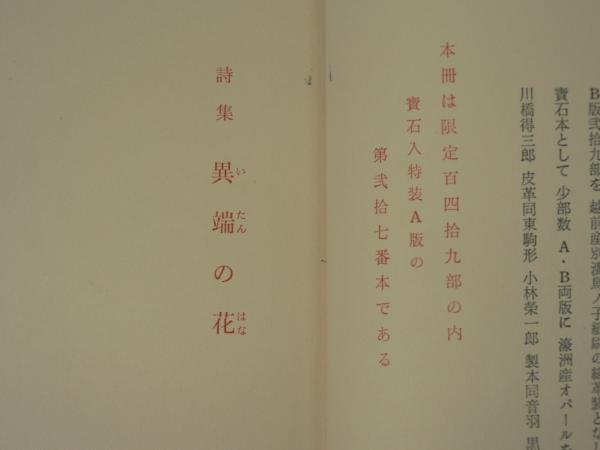 B版弐拾九部を 越前産別漉鳥ノ子紙
寶石本として 少部数 A・B両版に 濠洲産オパールを
川橋得三郎 皮革同東駒形 小林榮一郎 製本同音羽 黒
本冊は限定百四拾九部の内
寶石入特装A版の
第弐拾七番本である
詩集 異端の花
いたん はな